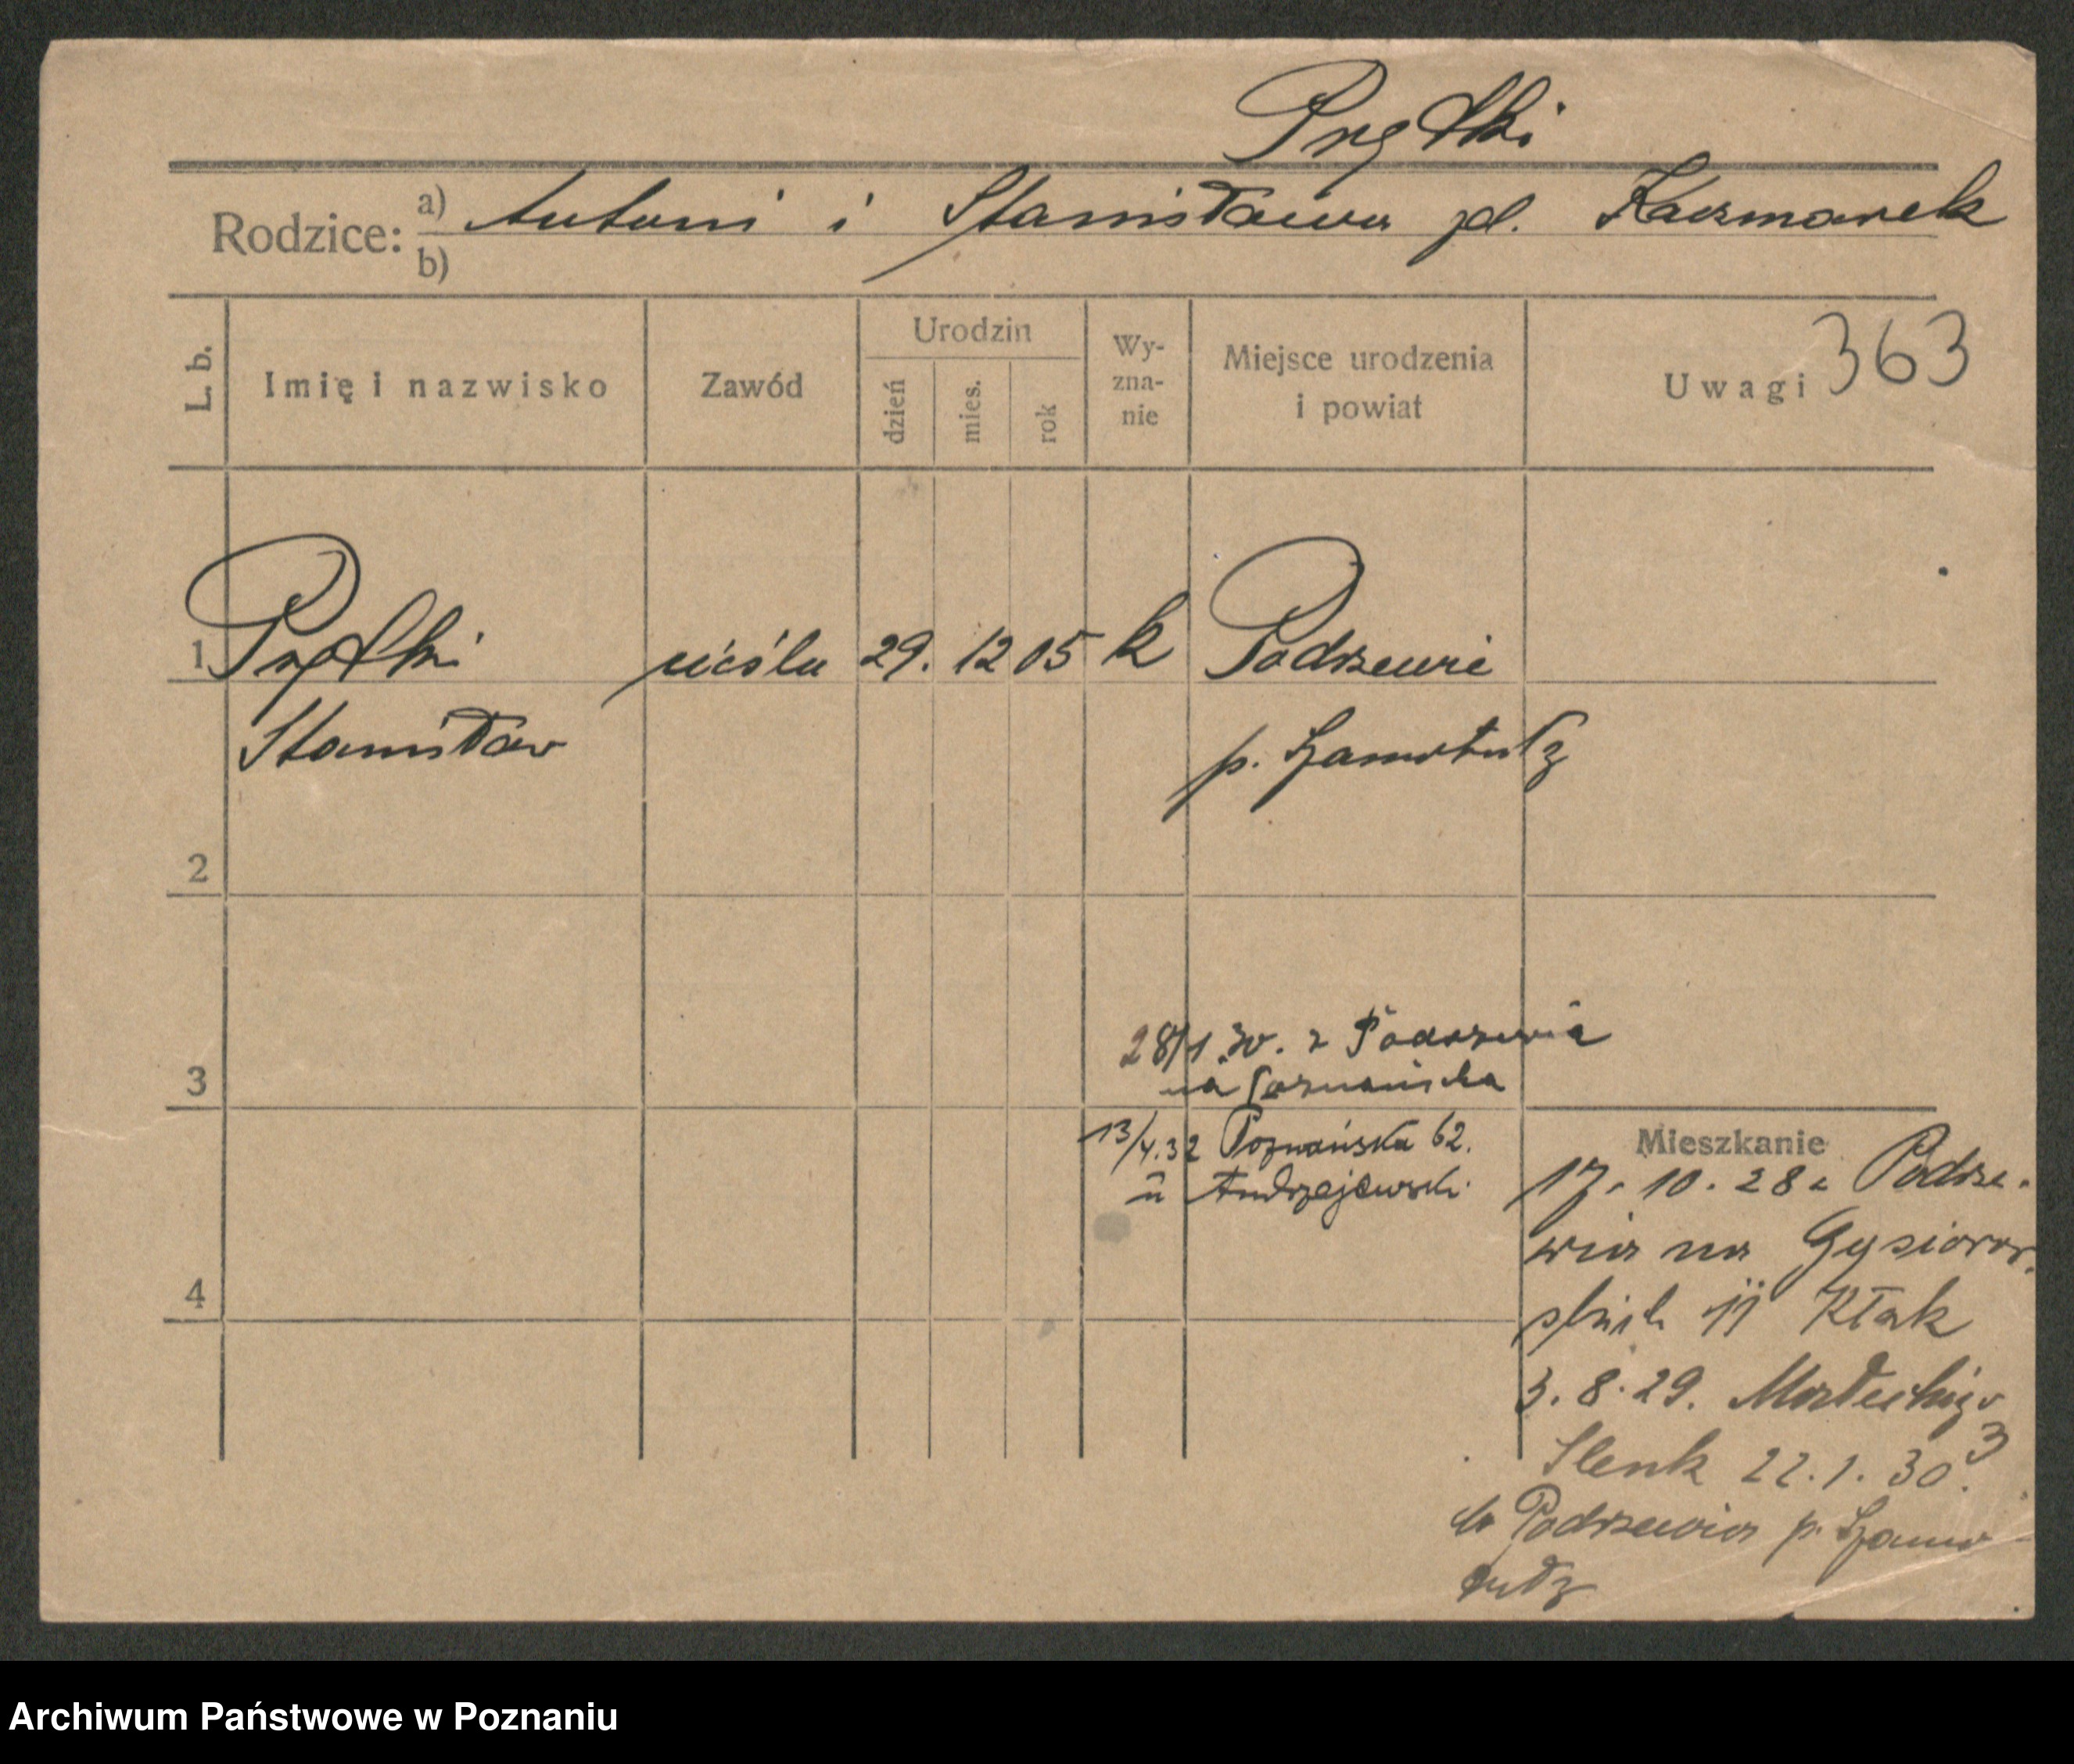 Prętki
Rodzice: a) Antoni i Stanisława zd. Kaczmarek
b)
L. b. Imię i nazwisko Zawód Urodzin dzień mies. rok Wyznanie Miejsce urodzenia i powiat Uwagi 363
1 Prętki cieśla 29. 12 05 k Podrzewie
Stanisław p. Szamotuły
2
3
28/1.30. z Podrzewia
na Poznańska
13/4.32 Poznańska 62.
u Andrzejewski
4
Mieszkanie
17.10.28 z Podrze-
wia na Gąsiorow
skich 11 Kłak
3.8.29. Małeckiego
3
Slenk 22.1.30.
do Podrzewia p. Szamo-
tuły
Archiwum Państwowe w Poznaniu